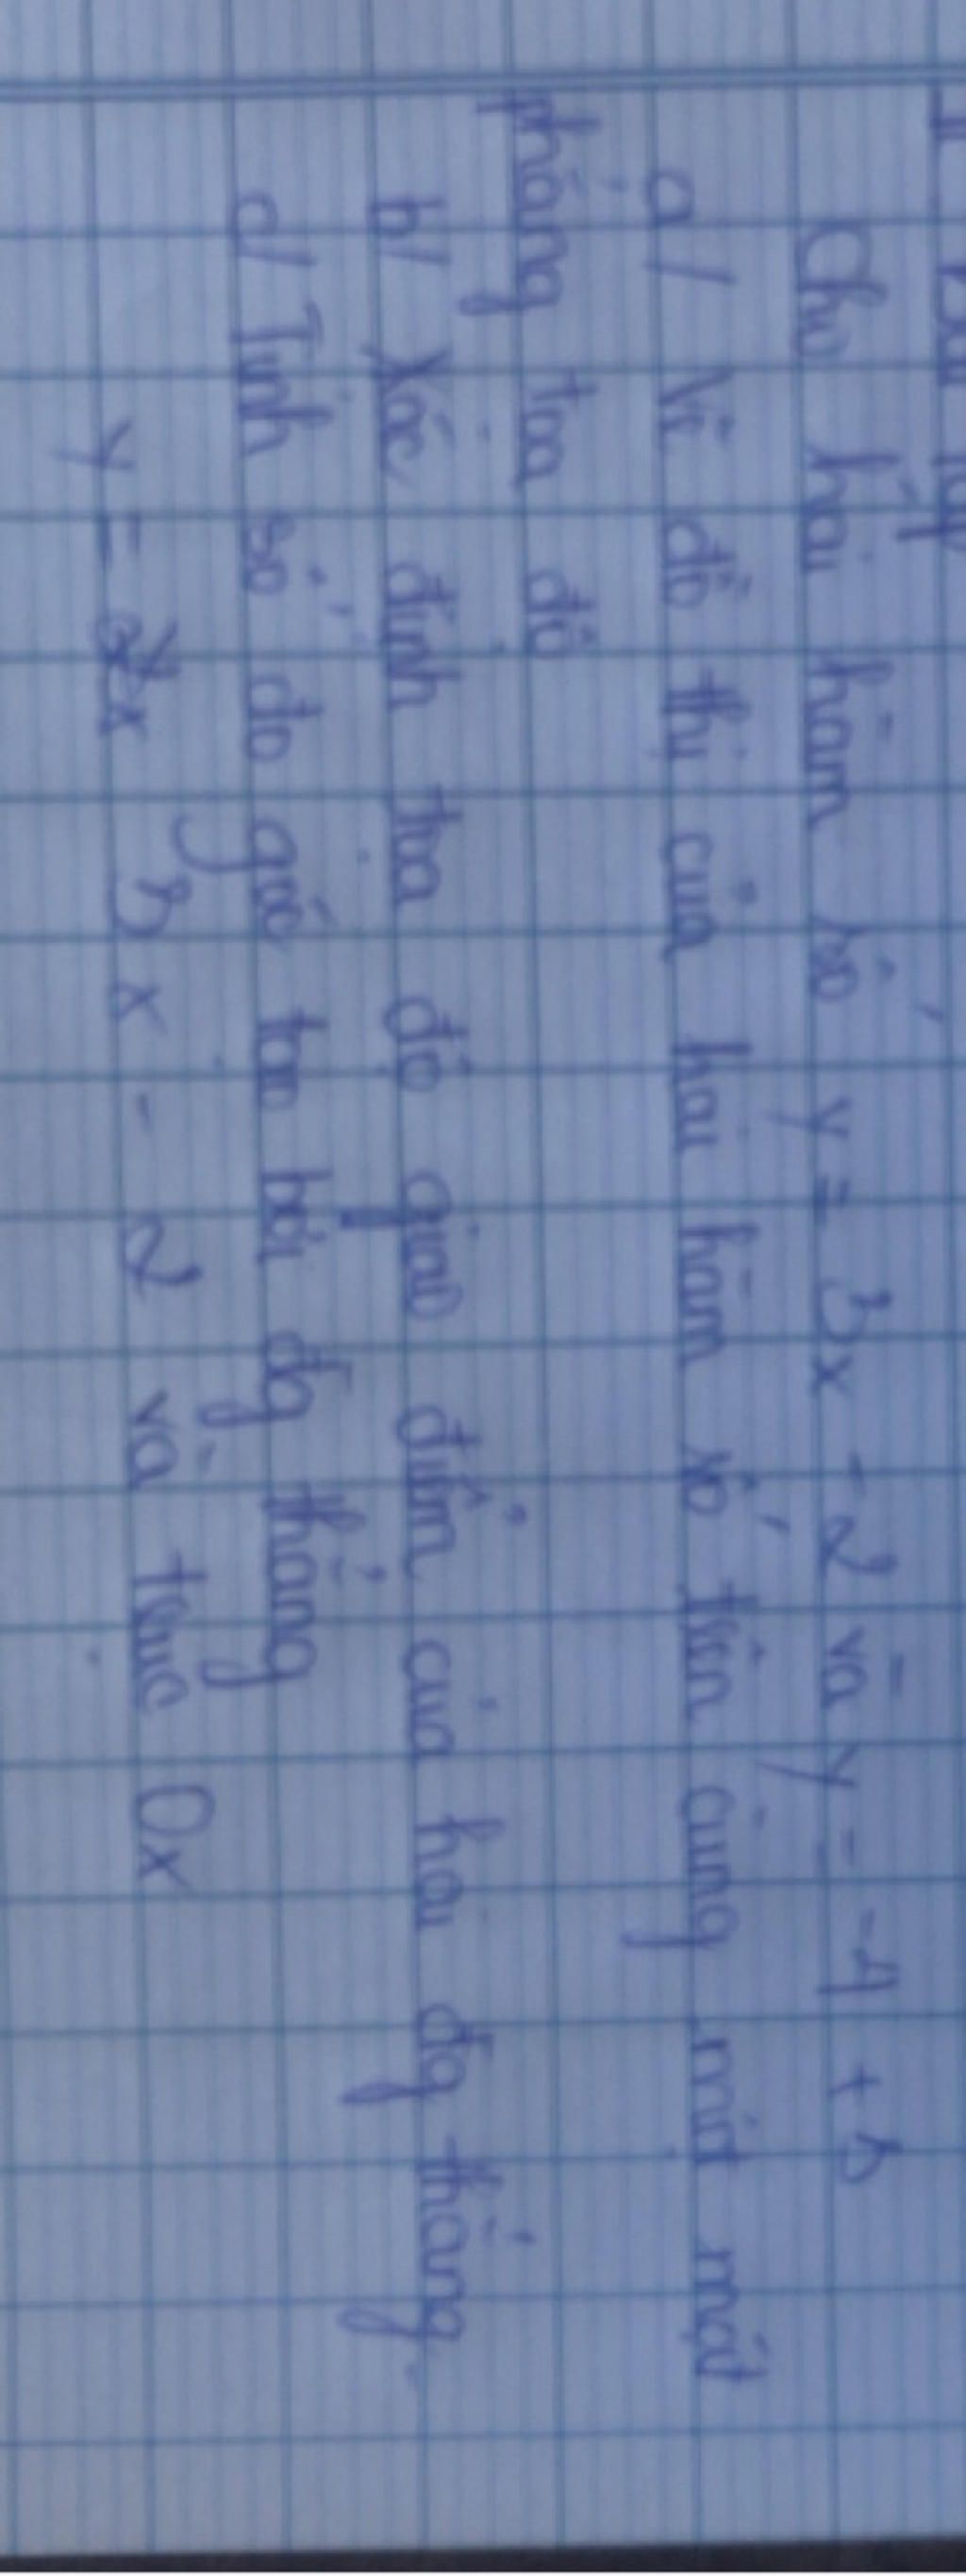 Bài tập
Cho hai hàm số y = 3x - 2 và y = -1 + 3
a/ Vẽ đồ thị của hai hàm số trên cùng một mặt
phẳng tọa độ
b/ Xác định tọa độ giao điểm của hai đg thẳng
c/ Tính số đo góc tạo bởi đg thẳng
y = 3x - 2 và trục Ox